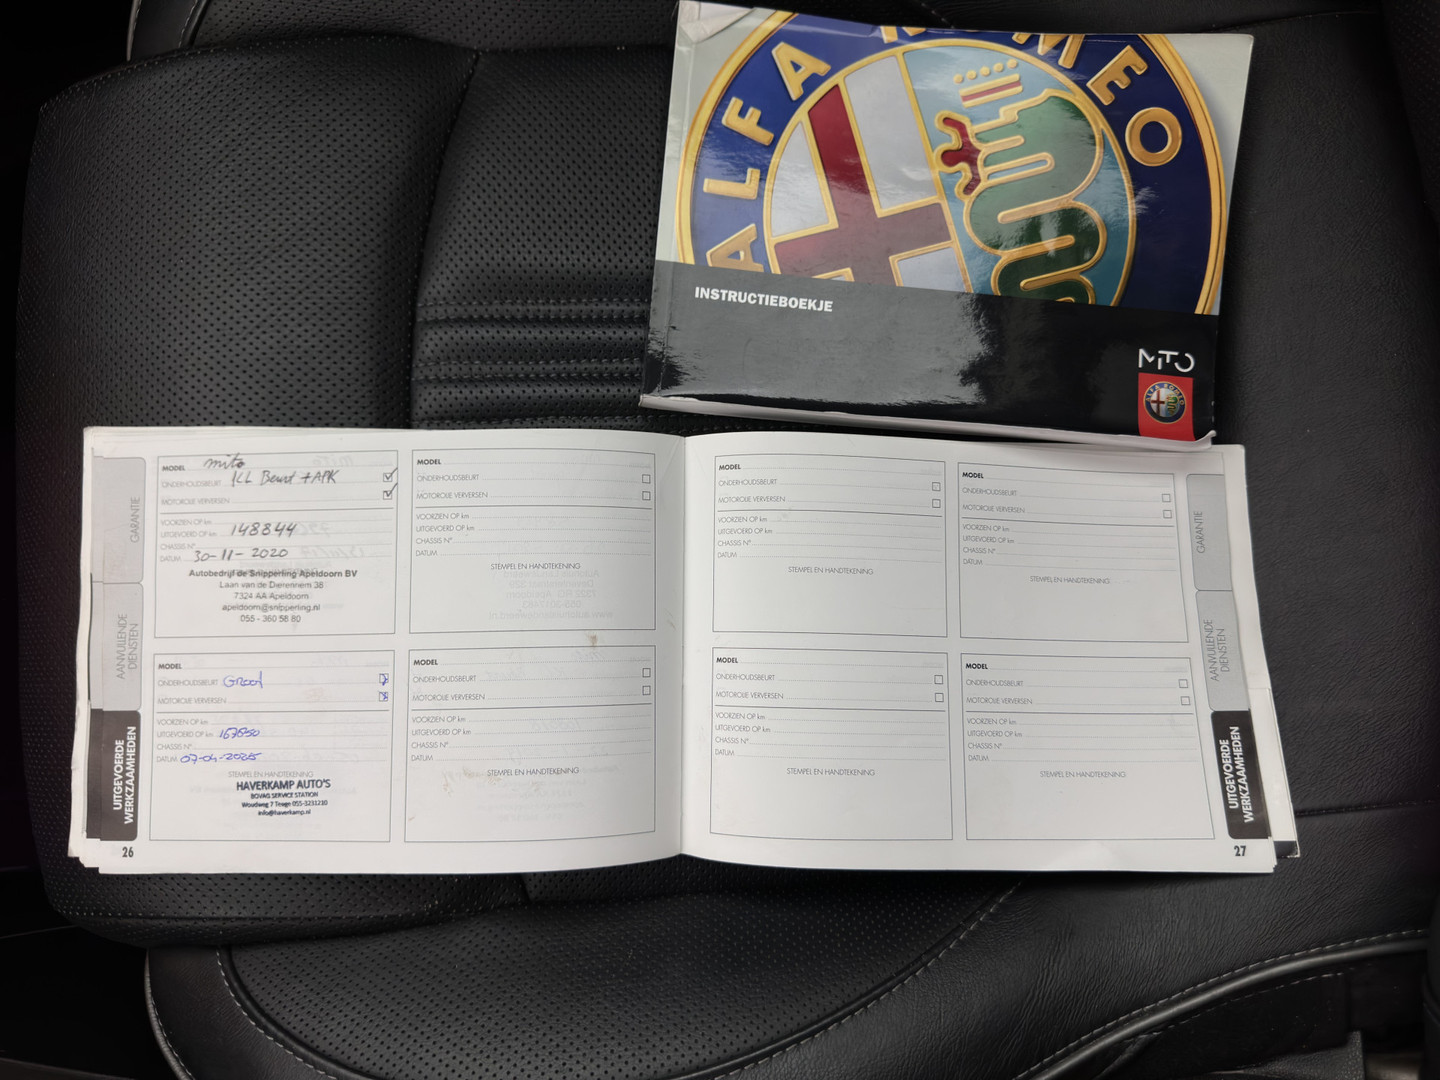 ALFA ROMEO
INSTRUCTIEBOEKJE
MiTO
GARANTIE
AANVULLENDE DIENSTEN
UITGEVOERDE WERKZAAMHEDEN
MODEL mito
ONDERHOUDSBEURT KL Beurt + APK
MOTOROLIE VERVERSEN
VOORZIEN OP km
UITGEVOERD OP km 148844
CHASSIS N°
DATUM 30-11-2020
Autobedrijf de Snipperling Apeldoorn BV
Laan van de Dierenriem 38
7324 AA Apeldoorn
apeldoorn@snipperling.nl
055 - 360 58 80
MODEL
ONDERHOUDSBEURT Groot
MOTOROLIE VERVERSEN
VOORZIEN OP km
UITGEVOERD OP km 167650
CHASSIS N°
DATUM 07-04-2025
STEMPEL EN HANDTEKENING
HAVERKAMP AUTO'S
BOVAG SERVICE STATION
Woudweg 7 Teuge 055-3231210
info@haverkamp.nl
26
MODEL
ONDERHOUDSBEURT
MOTOROLIE VERVERSEN
VOORZIEN OP km
UITGEVOERD OP km
CHASSIS N°
DATUM
STEMPEL EN HANDTEKENING
MODEL
ONDERHOUDSBEURT
MOTOROLIE VERVERSEN
VOORZIEN OP km
UITGEVOERD OP km
CHASSIS N°
DATUM
STEMPEL EN HANDTEKENING
MODEL
ONDERHOUDSBEURT
MOTOROLIE VERVERSEN
VOORZIEN OP km
UITGEVOERD OP km
CHASSIS N°
DATUM
STEMPEL EN HANDTEKENING
MODEL
ONDERHOUDSBEURT
MOTOROLIE VERVERSEN
VOORZIEN OP km
UITGEVOERD OP km
CHASSIS N°
DATUM
STEMPEL EN HANDTEKENING
MODEL
ONDERHOUDSBEURT
MOTOROLIE VERVERSEN
VOORZIEN OP km
UITGEVOERD OP km
CHASSIS N°
DATUM
STEMPEL EN HANDTEKENING
MODEL
ONDERHOUDSBEURT
MOTOROLIE VERVERSEN
VOORZIEN OP km
UITGEVOERD OP km
CHASSIS N°
DATUM
STEMPEL EN HANDTEKENING
GARANTIE
AANVULLENDE DIENSTEN
UITGEVOERDE WERKZAAMHEDEN
27